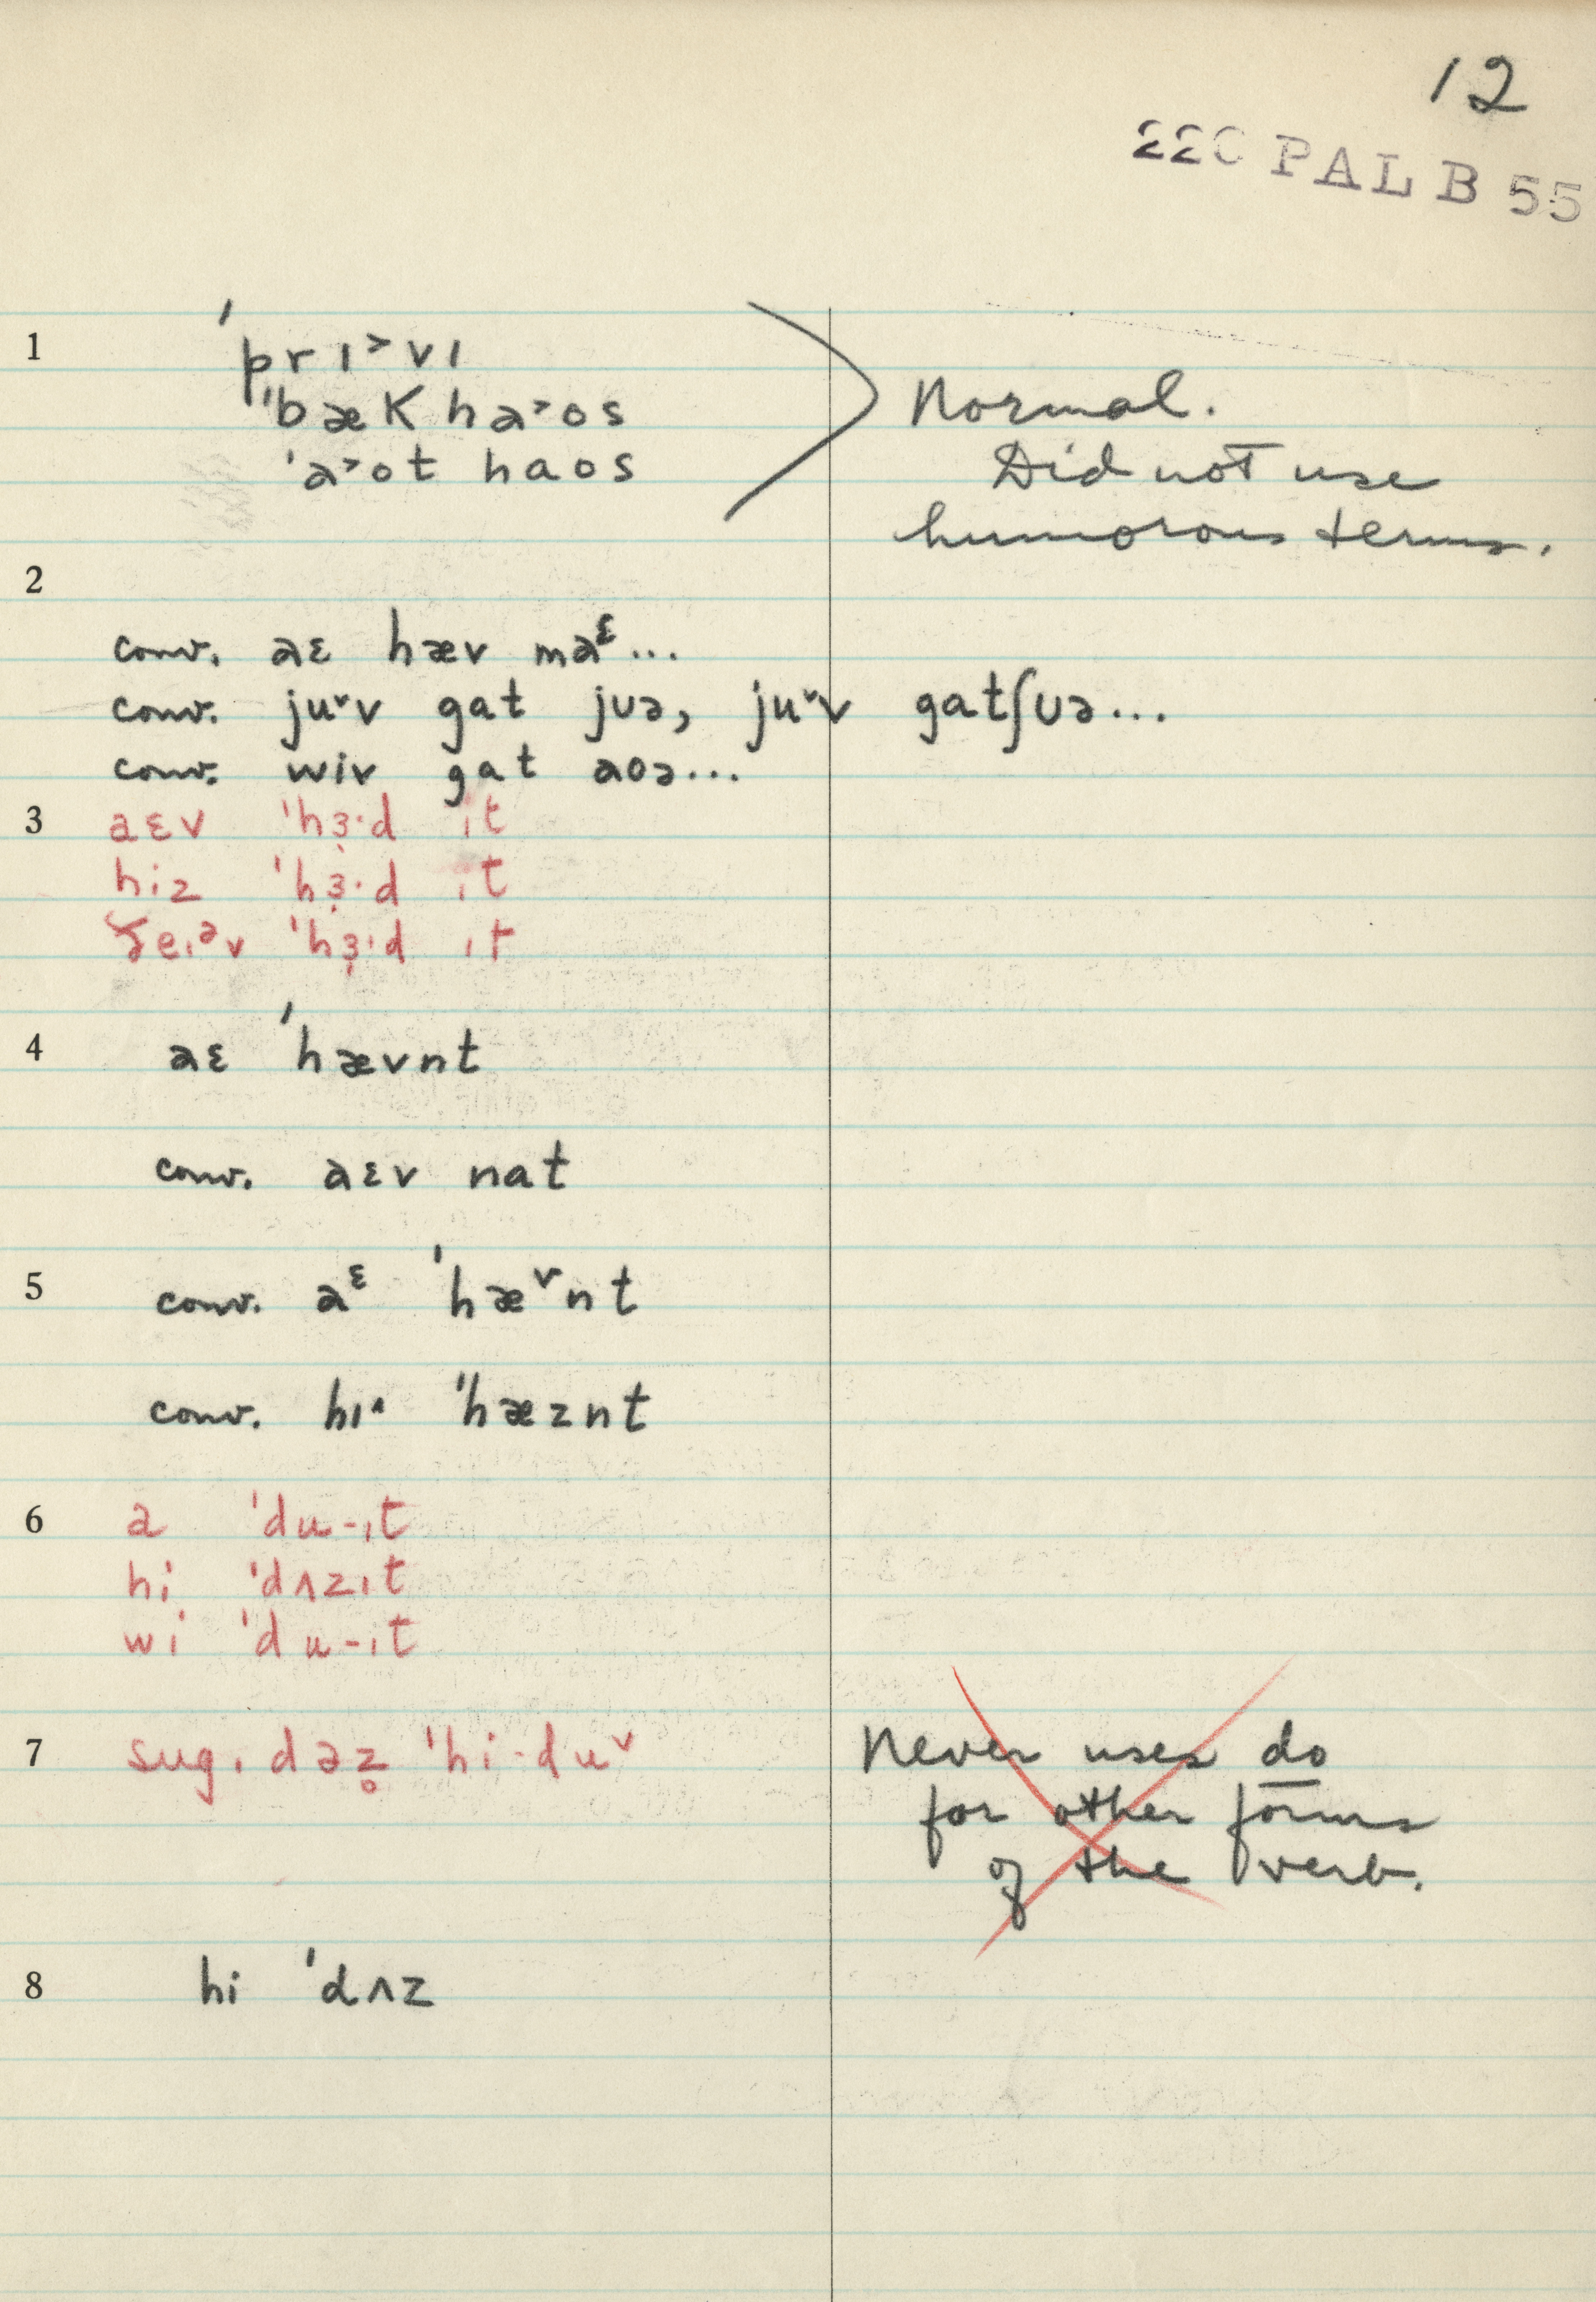 12
22C PAL B 55
1 ˈprɪ˃vɪ
ˈbæk ha˃os
ˈa˃ot haos
Normal.
Did not use
humorous terms.
2
conv. aɛ hæv maᵋ...
conv. ju˅v gat jʊə, ju˅v gatʃʊə...
conv. wiv gat aoə...
3 aɛv ˈhɜ̣·d ɪt
hiz ˈhɜ̣·d ɪt
ðeɪᵊv ˈhɜ̣·d ɪt
4 aɛ ˈhævnt
conv. aɛv nat
5 conv. aᵋ ˈhæᵛnt
conv. hɪ˄ ˈhæznt
6 a ˈdu-ɪt
hi ˈdʌzɪt
wi ˈdu-ɪt
7 sug. dəz̥ ˈhi·du˅
Never uses do
for other forms
of the verb.
8 hi ˈdʌz